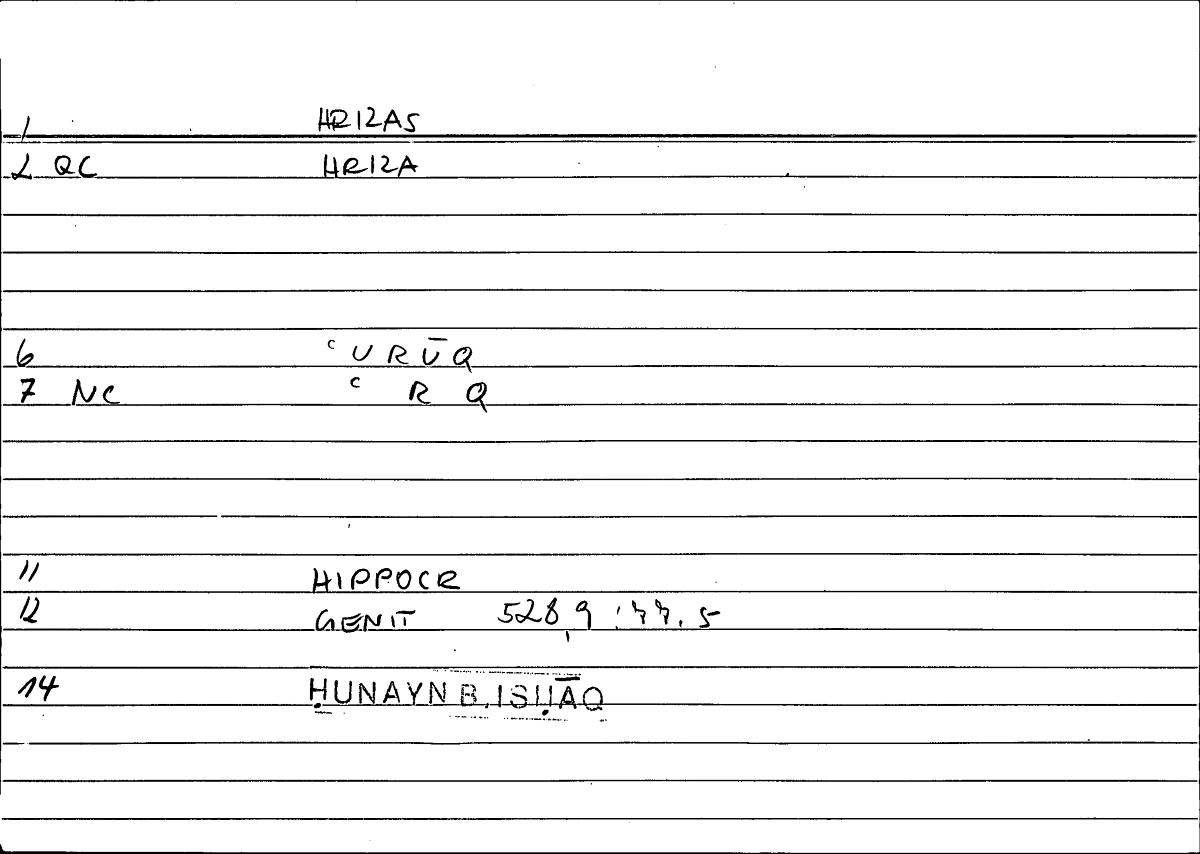 1 HRIZAS
2 QC HRIZA
6 ʿURŪQ
7 NC ʿ R Q
11 HIPPOCR
12 GENIT 528,9 : 77.5
14 ḤUNAYN B. ISḤĀQ